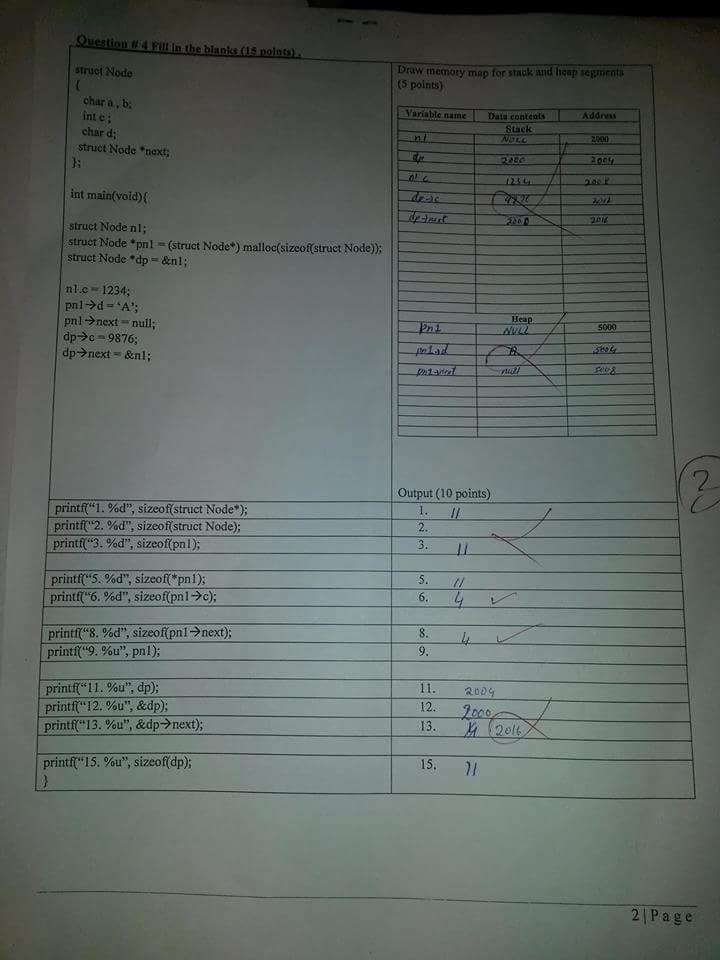 Question # 4 Fill in the blanks (15 points) .
struct Node
{
char a , b;
int c ;
char d;
struct Node *next;
};
int main(void){
struct Node n1;
struct Node *pn1 = (struct Node*) malloc(sizeof(struct Node));
struct Node *dp = &n1;
n1.c = 1234;
pn1→d = ‘A’;
pn1→next = null;
dp→c = 9876;
dp→next = &n1;
Draw memory map for stack and heap segments
(5 points)
Variable name Data contents Address
Stack
n1 NULL 2000
dp 2000 2004
n1.c 1234 2008
dp→c 9876 2012
dp→next 2008 2016
Heap
pn1 NULL 5000
pn1→d A 5004
pn1→next null 5008
2
Output (10 points)
printf(“1. %d”, sizeof(struct Node*); 1. 11
printf(“2. %d”, sizeof(struct Node); 2.
printf(“3. %d”, sizeof(pn1); 3. 11
printf(“5. %d”, sizeof(*pn1); 5. 11
printf(“6. %d”, sizeof(pn1→c); 6. 4
printf(“8. %d”, sizeof(pn1→next); 8. 4
printf(“9. %u”, pn1); 9.
printf(“11. %u”, dp); 11. 2004
printf(“12. %u”, &dp); 12. 2000
printf(“13. %u”, &dp→next); 13. 2016
printf(“15. %u”, sizeof(dp); 15. 11
}
2 | P a g e